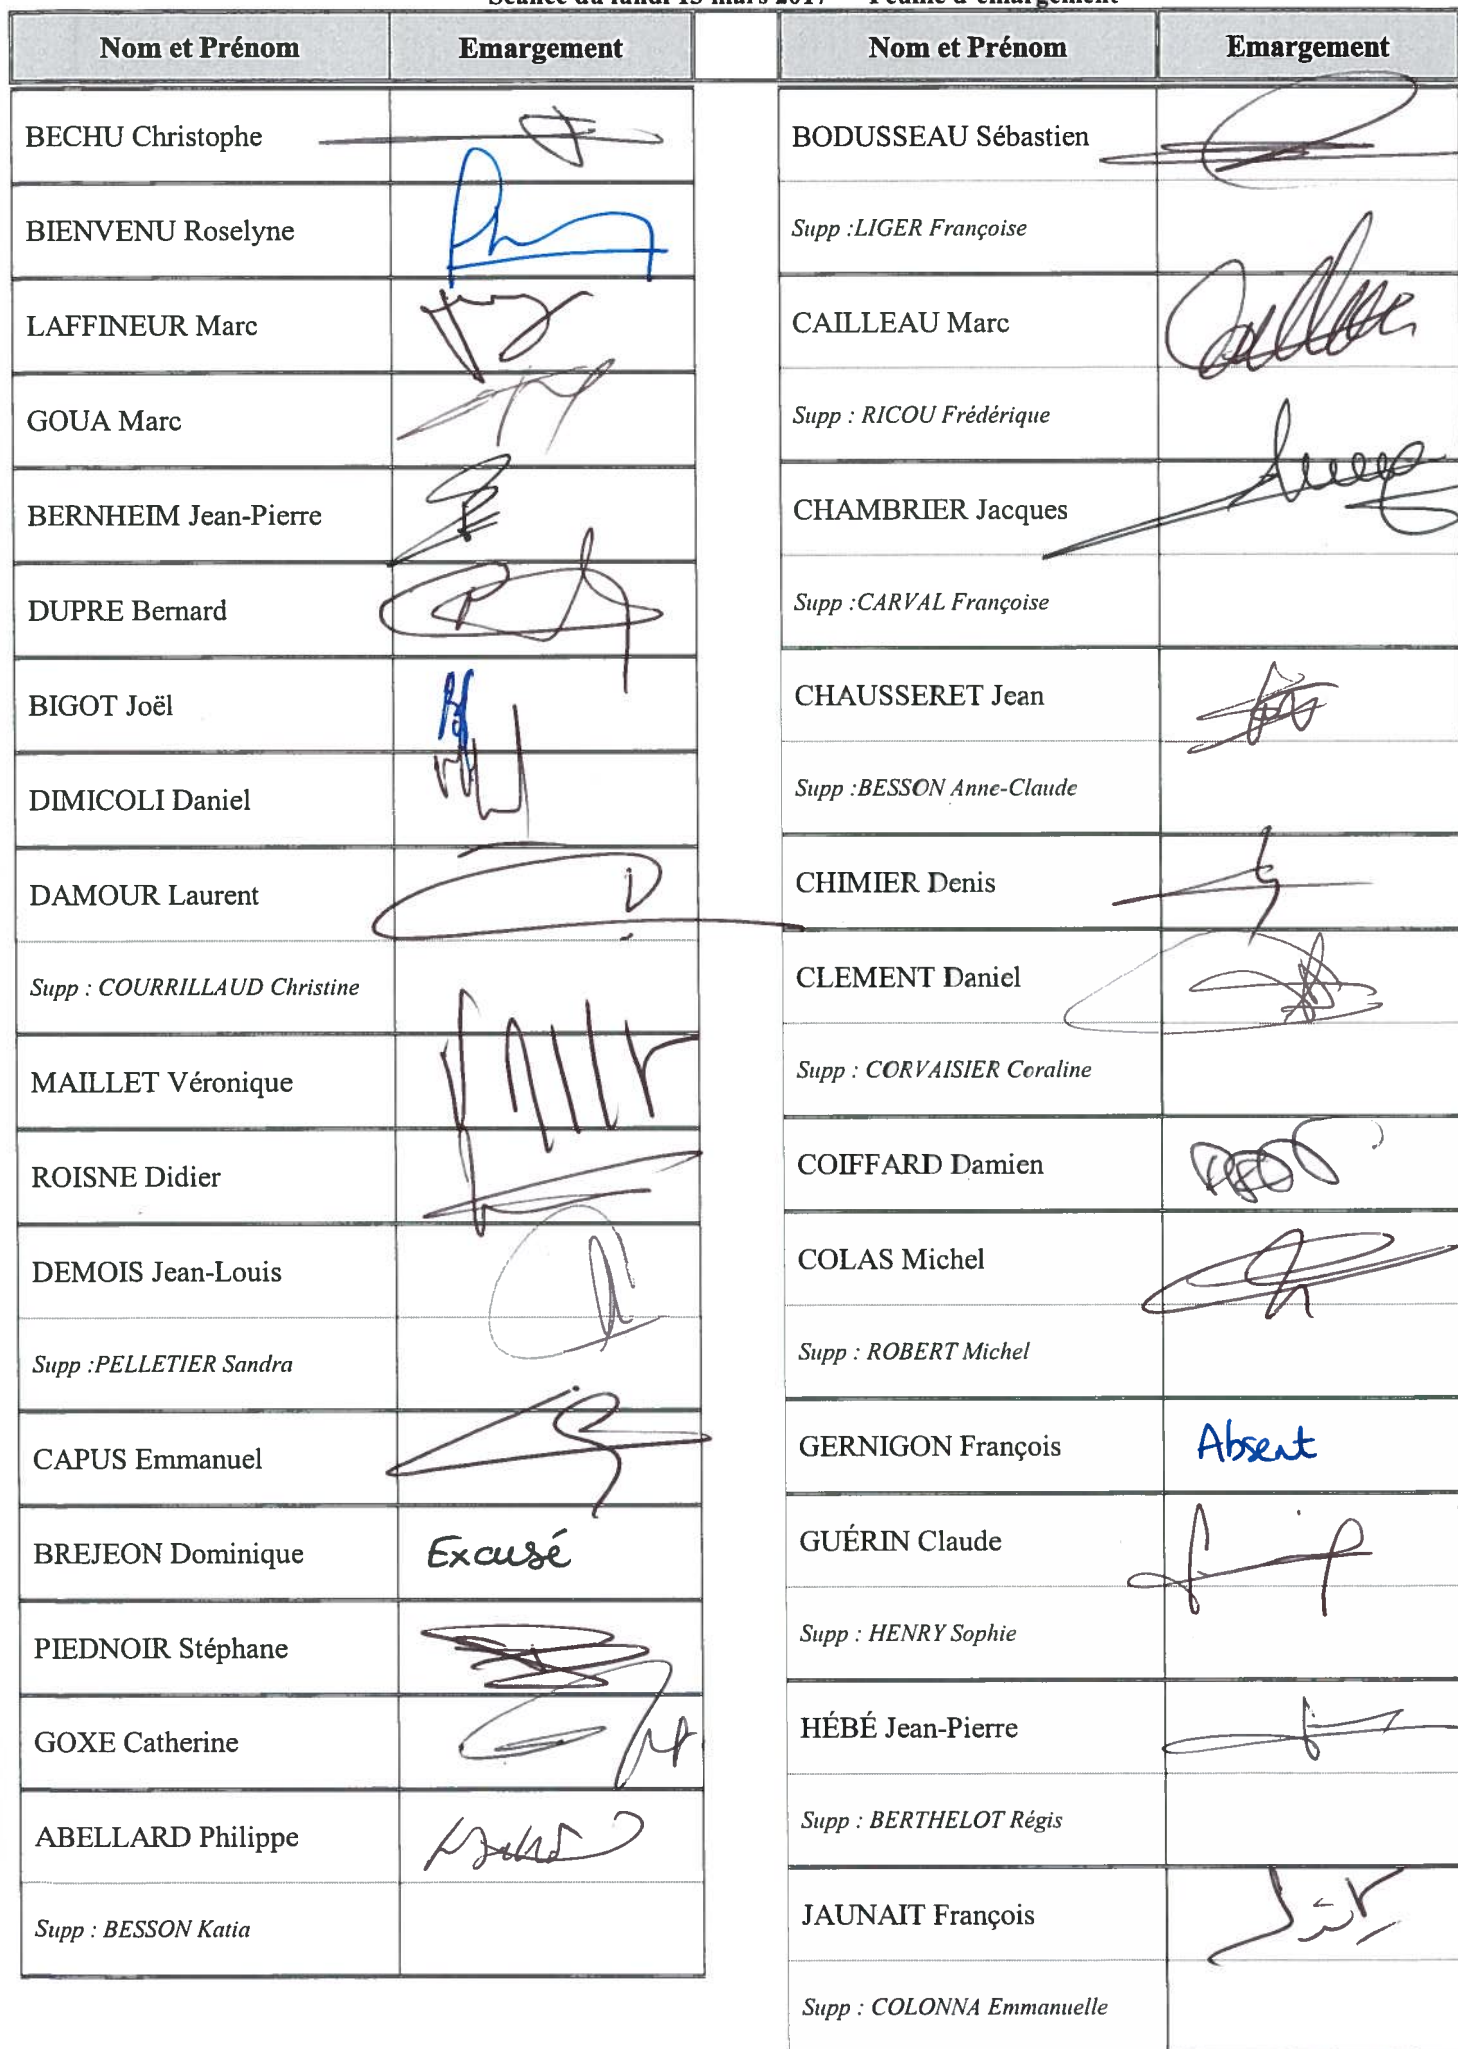 Séance du lundi 13 mars 2017 Feuille d'émargement
Nom et Prénom Emargement
BECHU Christophe
BIENVENU Roselyne
LAFFINEUR Marc
GOUA Marc
BERNHEIM Jean-Pierre
DUPRE Bernard
BIGOT Joël
DIMICOLI Daniel
DAMOUR Laurent
Supp : COURRILLAUD Christine
MAILLET Véronique
ROISNE Didier
DEMOIS Jean-Louis
Supp :PELLETIER Sandra
CAPUS Emmanuel
BREJEON Dominique Excusé
PIEDNOIR Stéphane
GOXE Catherine
ABELLARD Philippe
Supp : BESSON Katia
Nom et Prénom Emargement
BODUSSEAU Sébastien
Supp :LIGER Françoise
CAILLEAU Marc
Supp : RICOU Frédérique
CHAMBRIER Jacques
Supp :CARVAL Françoise
CHAUSSERET Jean
Supp :BESSON Anne-Claude
CHIMIER Denis
CLEMENT Daniel
Supp : CORVAISIER Coraline
COIFFARD Damien
COLAS Michel
Supp : ROBERT Michel
GERNIGON François Absent
GUÉRIN Claude
Supp : HENRY Sophie
HÉBÉ Jean-Pierre
Supp : BERTHELOT Régis
JAUNAIT François
Supp : COLONNA Emmanuelle